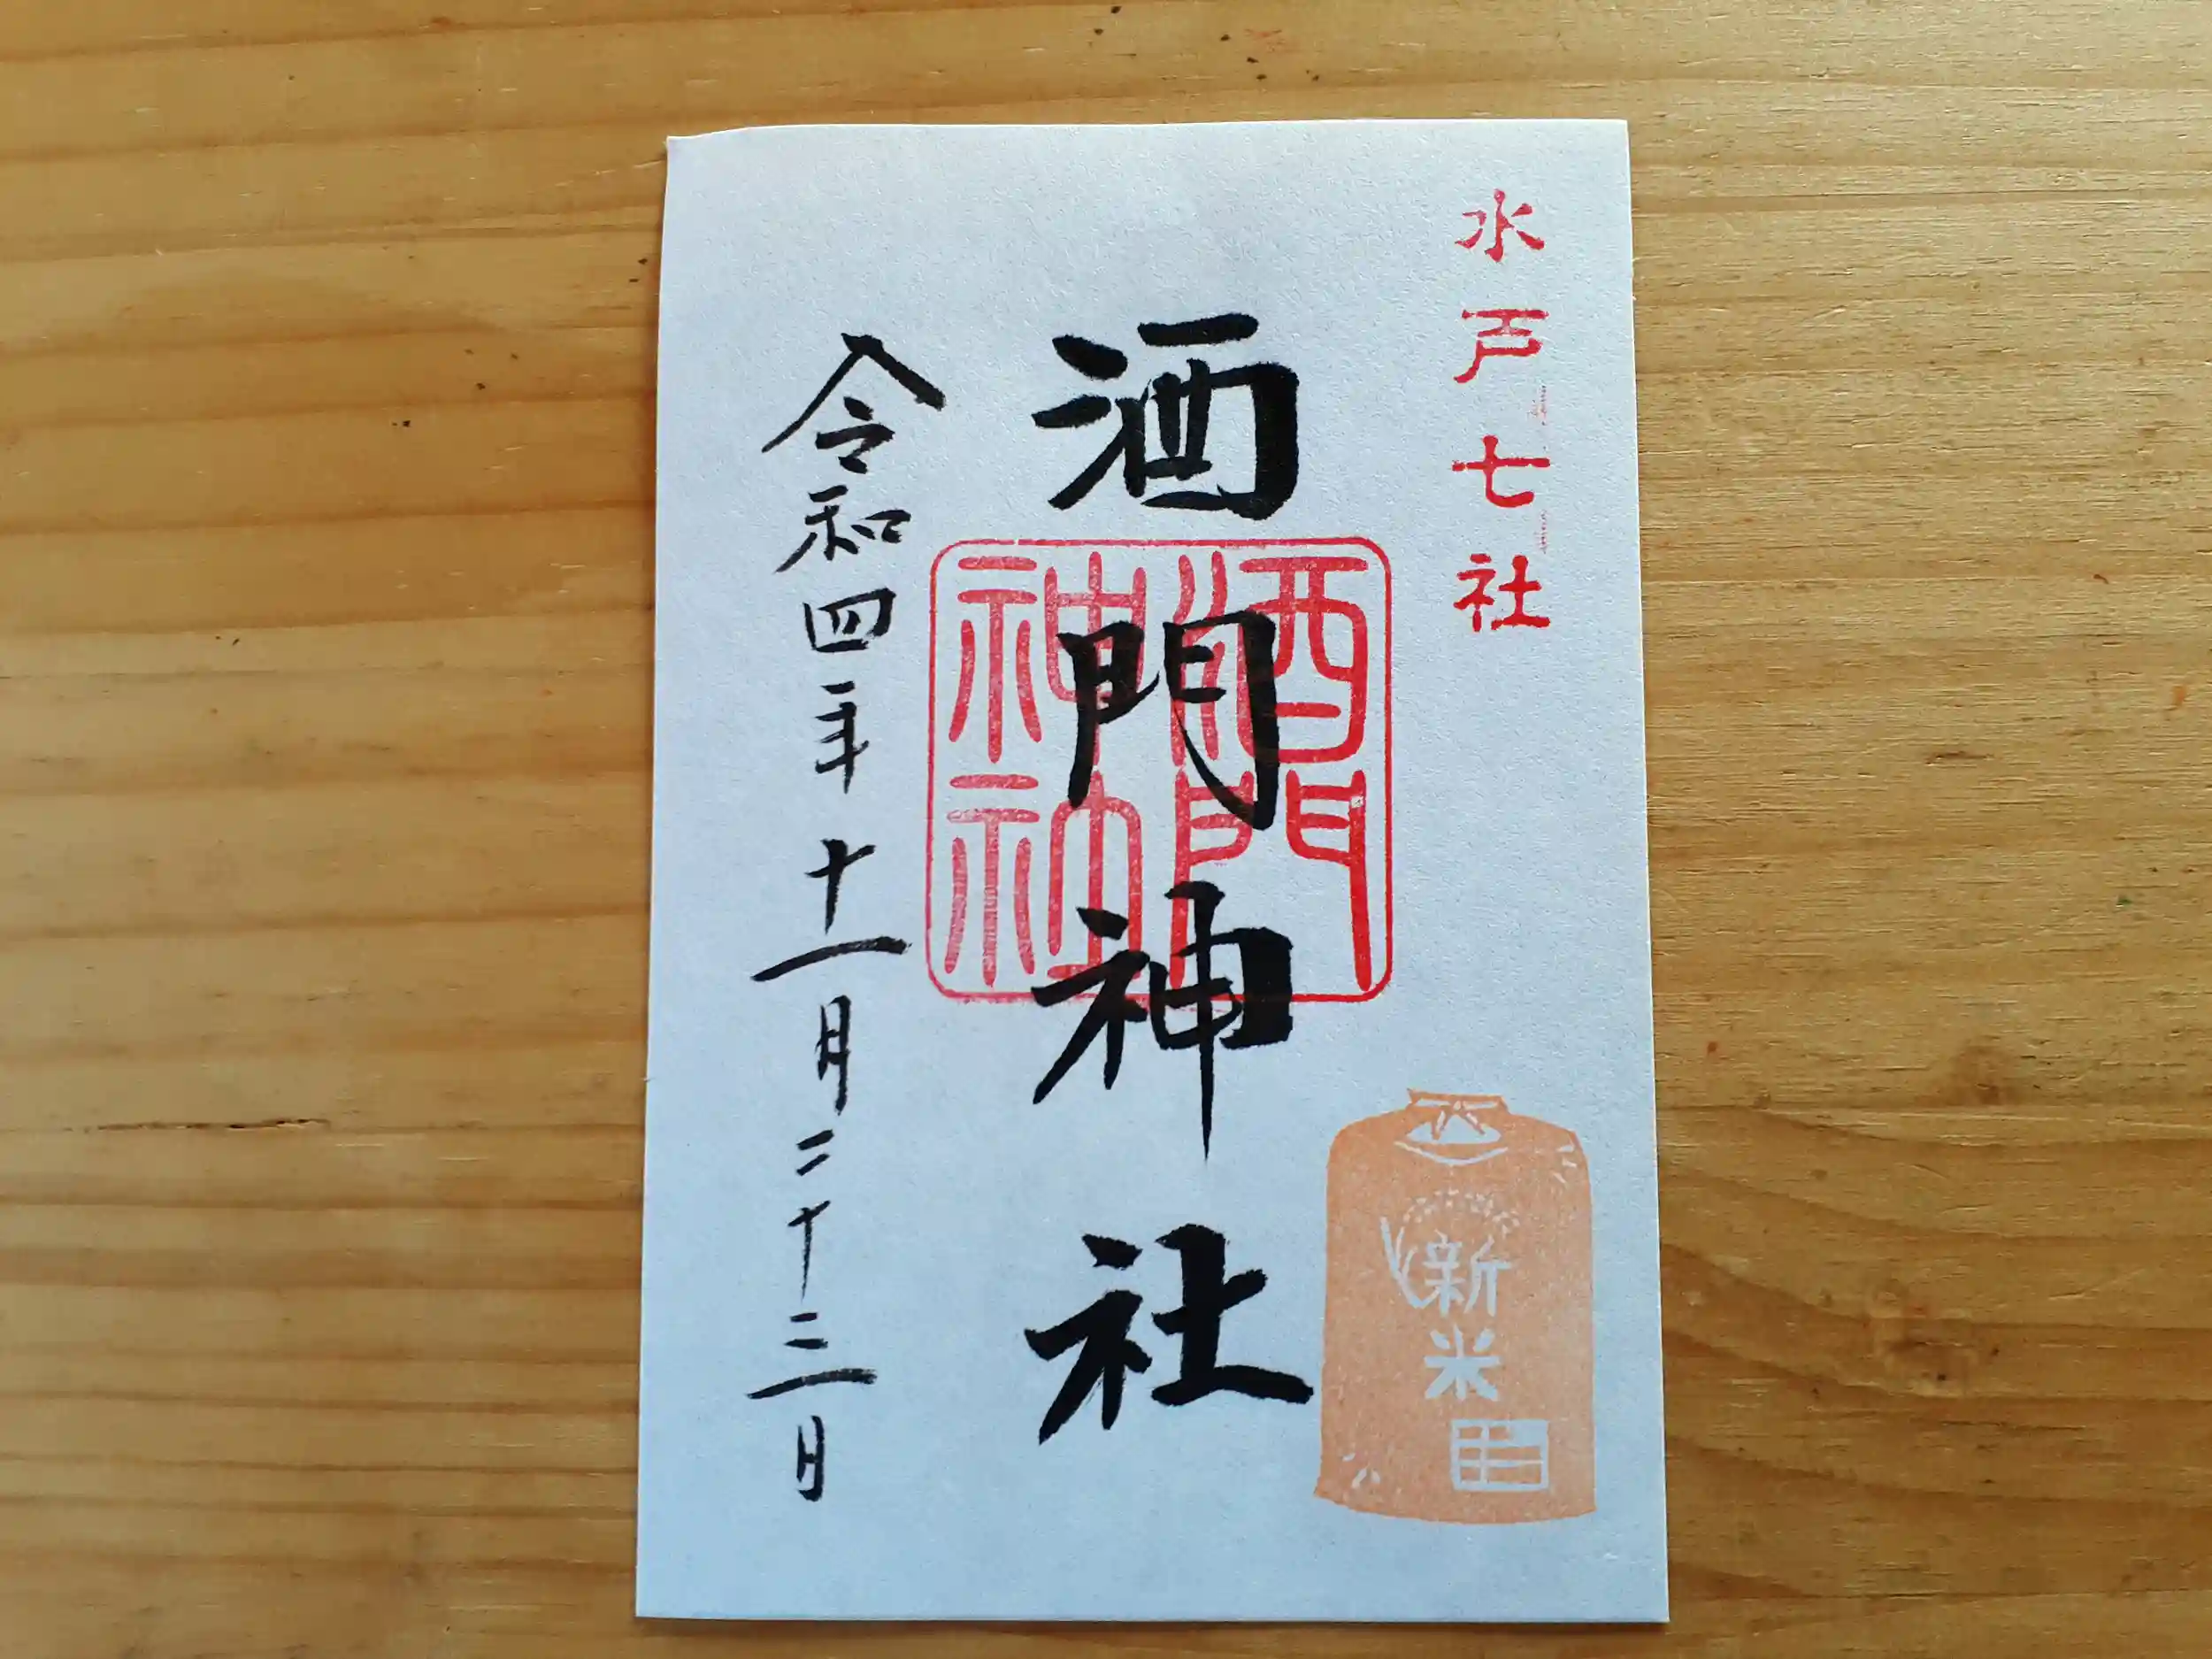 水戸七社
酒門神社
酒門神社
令和四年十一月二十三日
新米